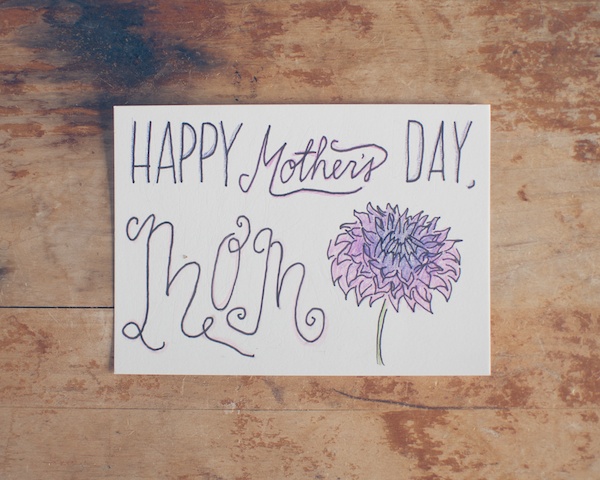 HAPPY Mother's DAY,
MOM